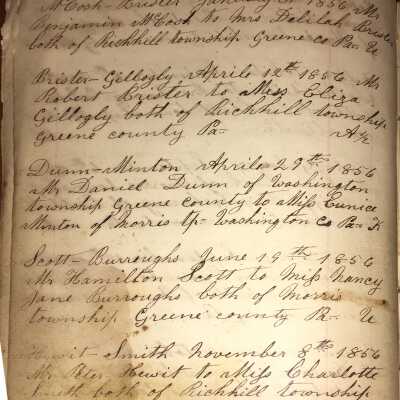 McCosh-Brister January 1856 Mr
Benjamin McCosh to Mrs Delilah Brister
both of Richhill township Greene co Pa-
Brister-Gellogly Aprile 12th 1856 Mr
Robert Brister to Miss Eliza
Gellogly both of Richhill township
Greene county Pa-
Dunn-Minton Aprile 29th 1856
Mr Daniel Dunn of Washington
township Greene county to Miss Eunice
Minton of Morris tp- Washington co Pa-
Scott-Burroughs June 19th 1856
Mr Hamilton Scott to Miss Nancy
Jane Burroughs both of Morris
township Greene county Pa-
Hewit-Smith November 8th 1856
Mr Peter Hewit to Miss Charlotte
Smith both of Richhill township